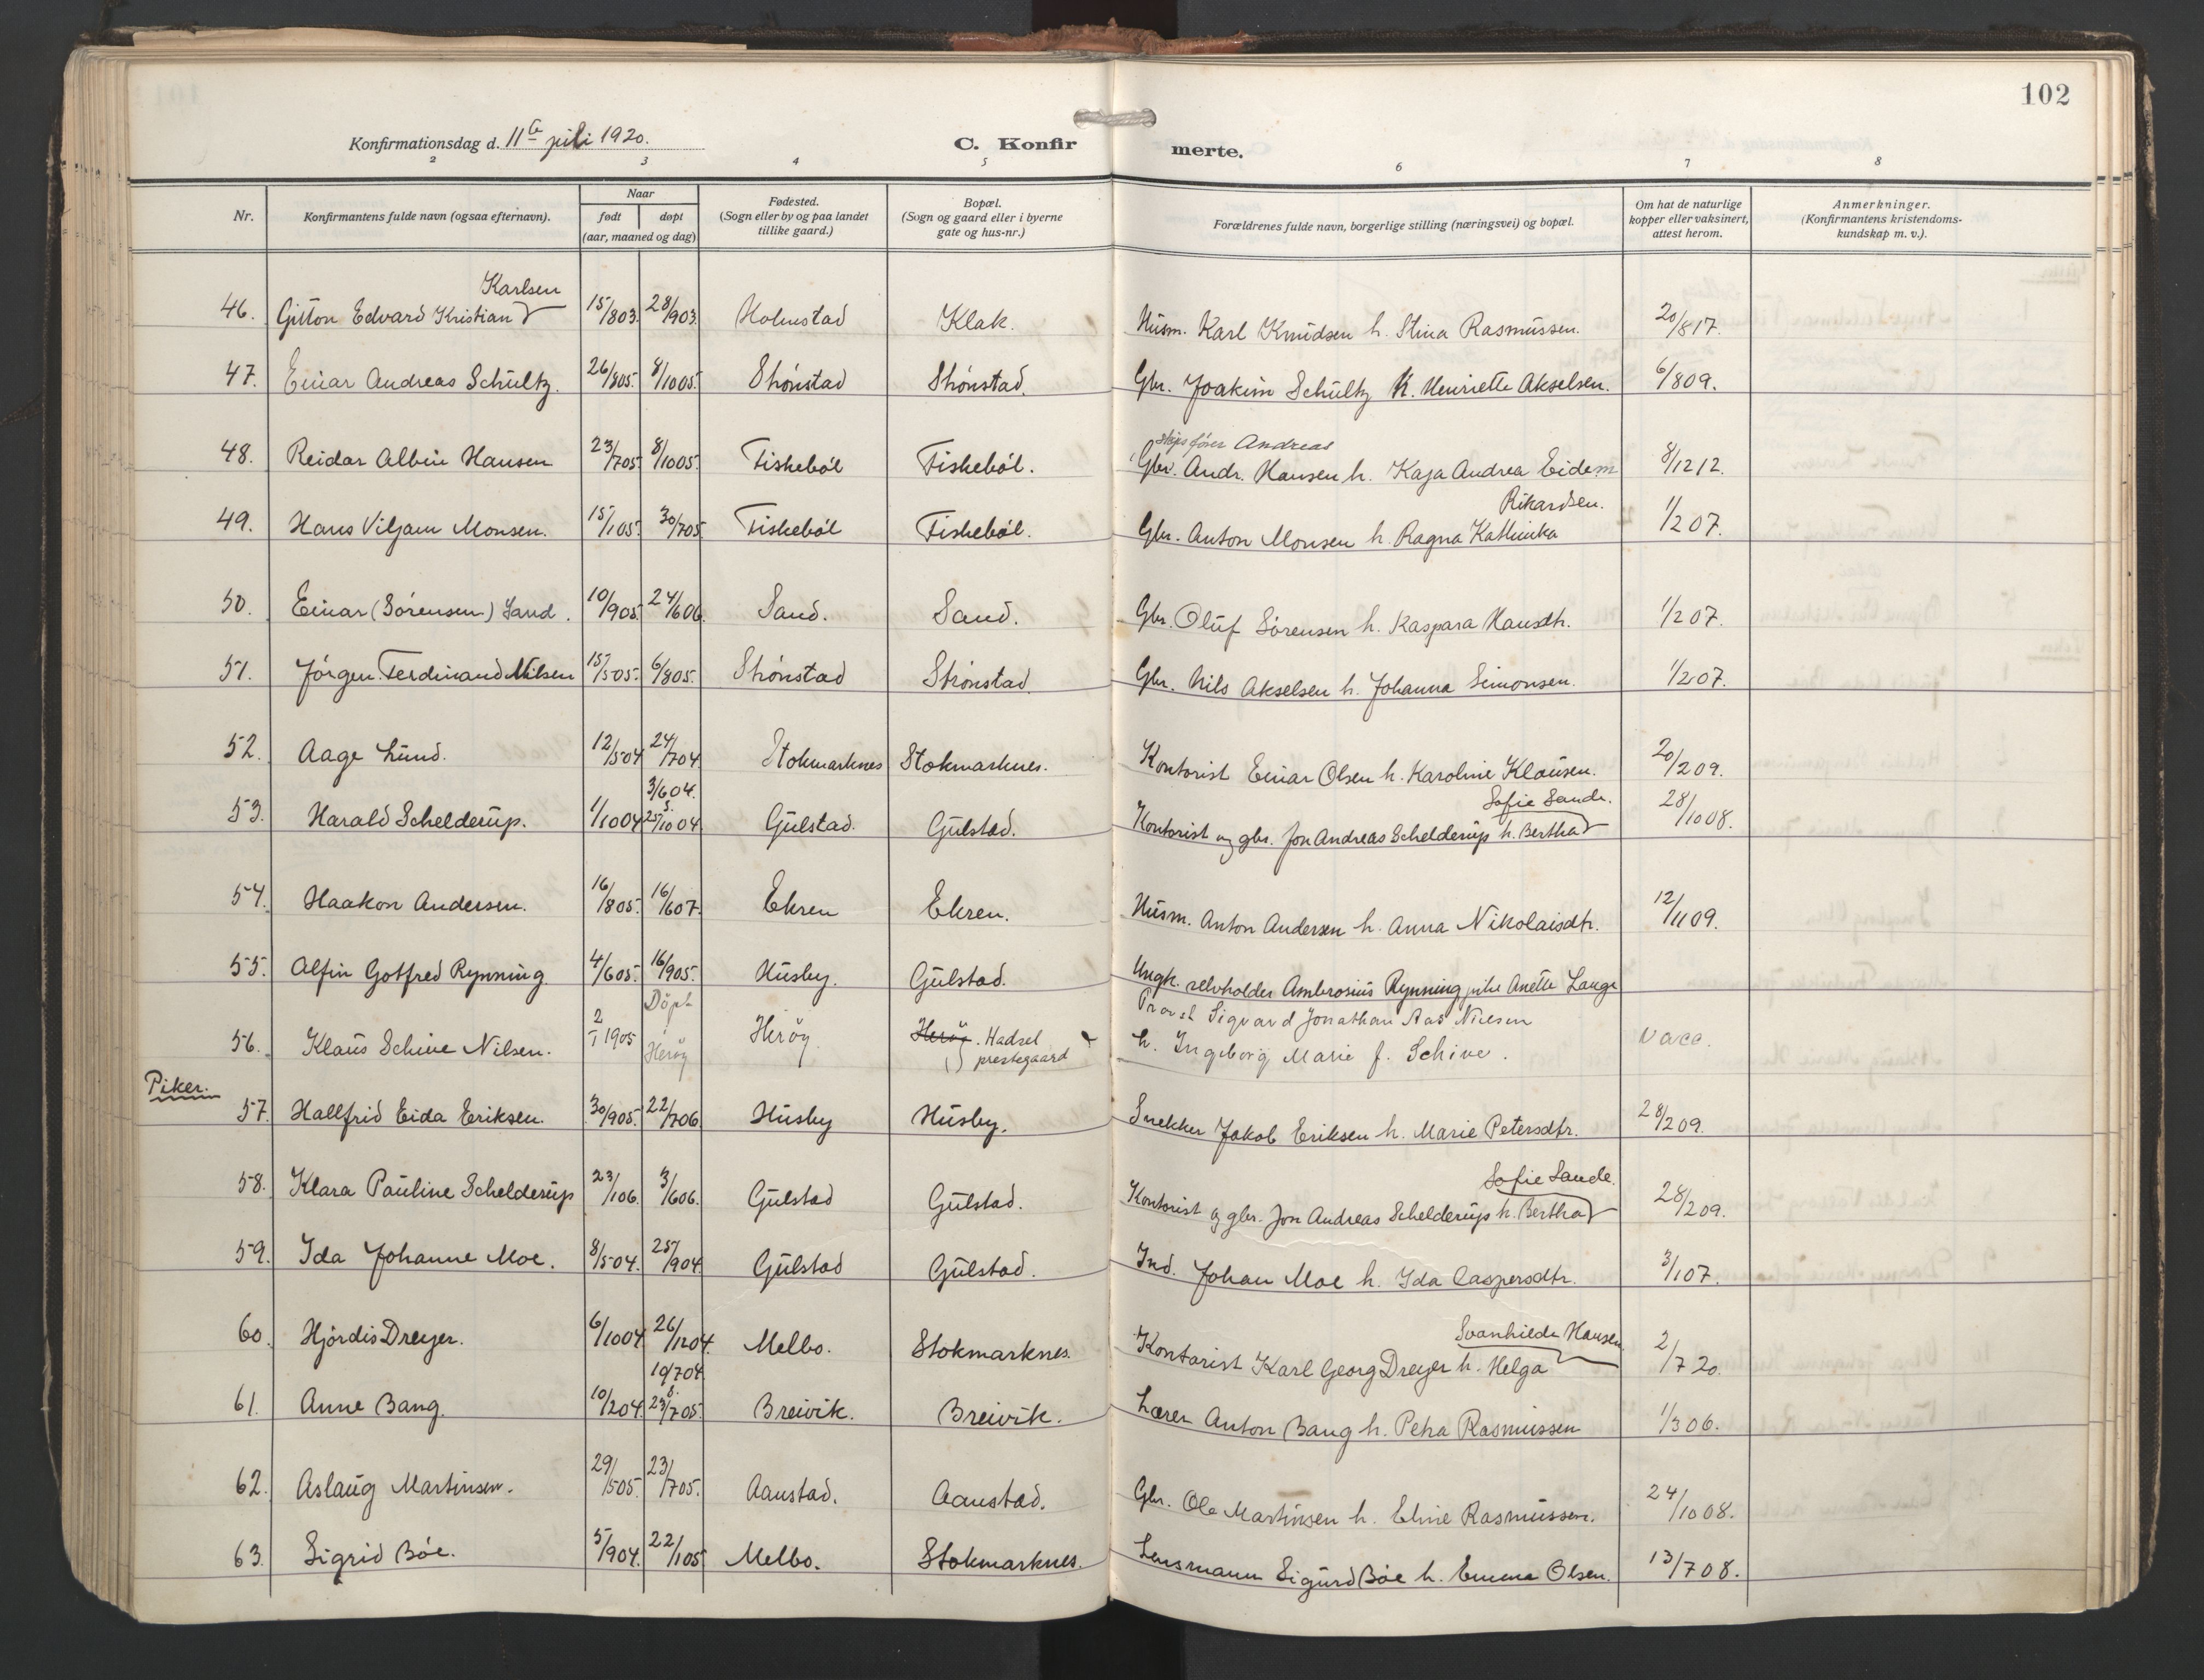 102
Konfirmationsdag d. 11te juli 1920.
C. Konfir merte.
2 3 4 5 6 7 8
Nr.
Konfirmantens fulde navn (ogsaa efternavn).
Naar
født døpt
(aar, maaned og dag)
Fødested.
(Sogn eller by og paa landet
tillike gaard.)
Bopæl.
(Sogn og gaard eller i byerne
gate og hus-nr.)
Forældrenes fulde navn, borgerlige stilling (næringsvei) og bopæl.
Om hat de naturlige
kopper eller vaksinert,
attest herom.
Anmerkninger.
(Konfirmantens kristendoms-
kundskap m. v.).
Karlsen
46. Gitton Edvard Kristian 15/803. 28/903. Holmstad Klak. Husm. Karl Knudsen h. Stina Rasmussen. 20/817.
47. Einar Andreas Schultz. 26/805. 8/1005. Strönstad Strönstad. Gbr. Joakim Schultz h. Henriette Akselsen. 6/809.
skipsfører Andreas
48. Reidar Albin Hansen 23/705. 8/1005. Fiskeböl Fiskeböl. Gbr. Andr. Hansen h. Kaja Andrea Eidem 8/1212.
Rikardsen.
49. Hans Viljam Monsen. 15/105. 30/705. Fiskeböl Fiskeböl. Gbr. Anton Monsen h. Ragna Kathinka 1/207.
50. Einar (Sörensen) Sand. 10/905. 24/606. Sand. Sand. Gbr. Oluf Sörensen h. Kaspara Hansdtr. 1/207.
51. Jörgen Ferdinand Nilsen 15/505. 6/805. Strönstad Strönstad. Gbr. Nils Akselsen h. Johanna Simonsen. 1/207.
52. Aage Lund. 12/504 24/704 Stokmarknes Stokmarknes. Kontorist Einar Olsen h. Karoline Klausen. 20/209.
3/604. Sofie Sandr.
53. Harald Schelderup. 1/1004 25/1004 Gulstad. Gulstad. Kontorist og gbr. Jon Andreas Schelderup h. Bertha 28/1008.
54. Haakon Andersen. 16/805. 16/607. Ekren Ekren. Husm. Anton Andersen h. Anna Nikolaisdtr. 12/1109.
55. Alfin Gotfred Rynning 4/605. 16/905. Husby. Gulstad. Ungk. selvholder Ambrosius Rynning, pike Anette Lange
Döpt Provst Sigvard Jonathan Aas Nielsen
56. Klaus Schive Nilsen. 2/1 1905 Heröy Heröy Heröy. Hadsel
prestegaard h. Ingeborg Marie f. Schive. vacc.
Piker.
57. Hallfrid Eida Eriksen. 30/905. 22/706 Husby Husby. Snekker Jakob Eriksen h. Marie Petersdtr. 28/209.
Sofie Sande.
58. Klara Pauline Schelderup 23/106. 3/606. Gulstad Gulstad. Kontorist og gbr. Jon Andreas Schelderup h. Bertha 28/209.
59. Ida Johanne Moe. 8/504. 25/904. Gulstad Gulstad. Ind. Johan Moe h. Ida Caspersdtr. 3/107.
Svanhilda Hansen
60. Hjördis Dreyer. 6/1004. 26/1204. Melbo. Stokmarknes. Kontorist Karl Georg Dreyer h. Helga 2/720.
10/704
61. Anne Bang. 10/204. 23/705. Breivik. Breivik. Lærer Anton Bang h. Petra Rasmussen 1/306.
62. Aslaug Martinsen. 29/505. 23/705. Aanstad. Aanstad. Gbr. Ole Martinsen h. Eline Rasmussen. 24/1008.
63. Sigrid Böe. 5/904. 22/105 Melbo. Stokmarknes. Lensmann Sigurd Böe h. Emma Olsen. 13/708.